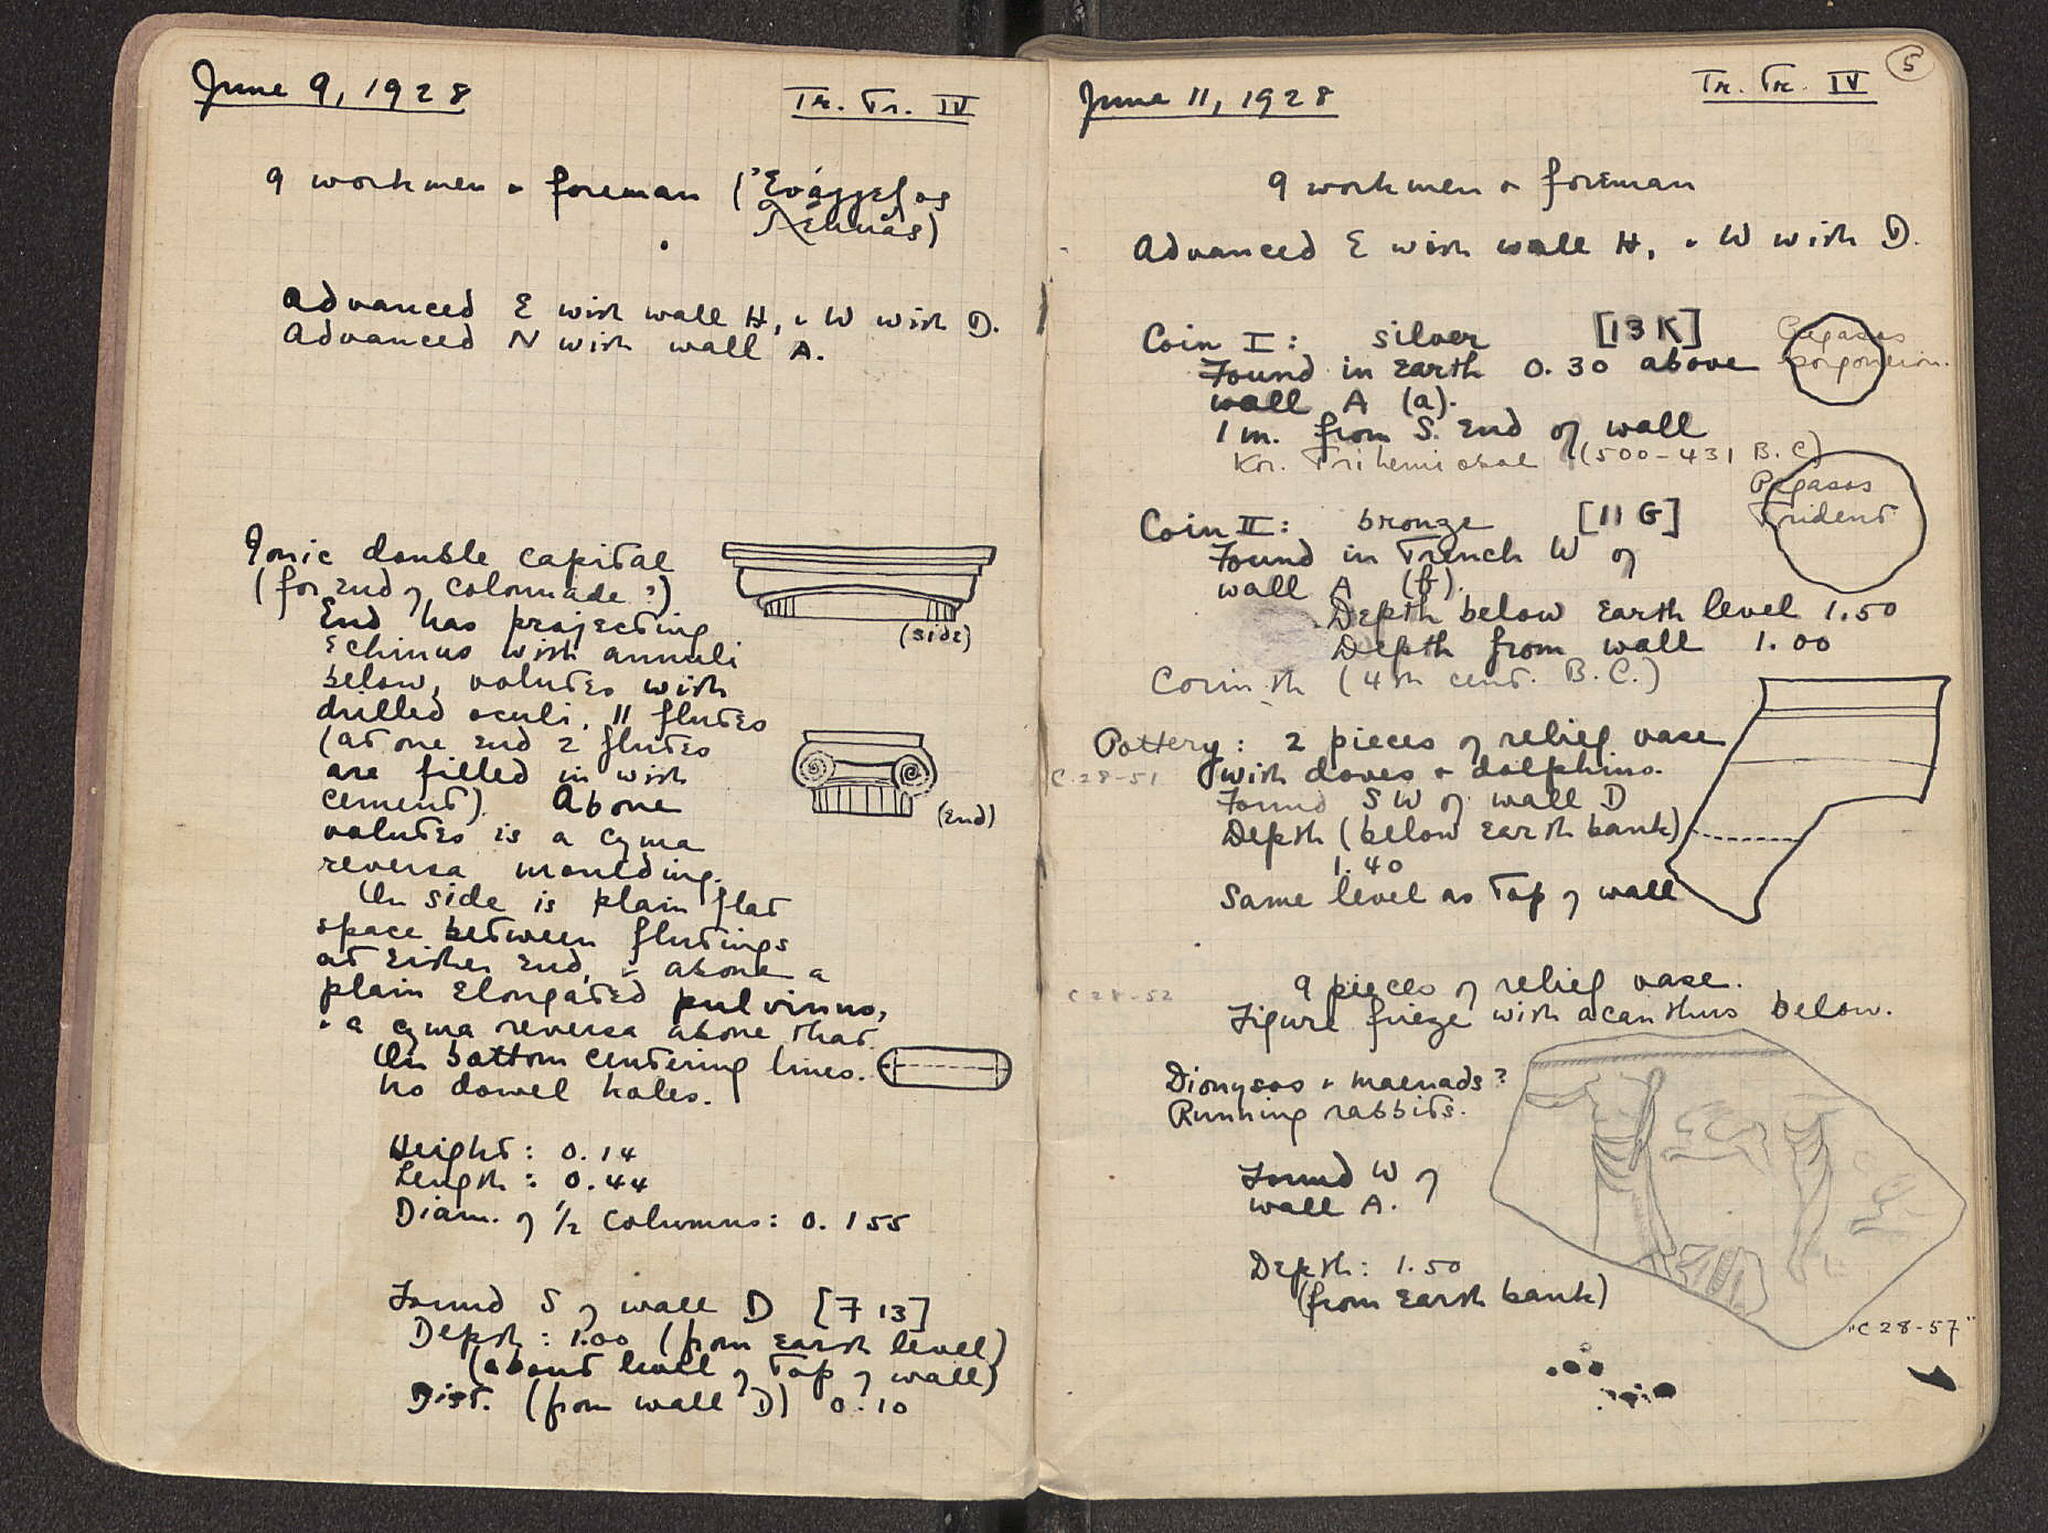 June 9, 1928
Tr. Tr. IV
9 workmen & foreman (Ἐυάγγελος
Λέκκας)
Advanced E with wall H, & W with D.
Advanced N with wall A.
Ionic double capital
(for end of colonnade?)
End has projecting
echinus with annuli
below, volutes with
drilled oculi, 11 flutes
(at one end 2 flutes
are filled in with
cement). Above
volutes is a cyma
reversa moulding.
On side is plain flat
space between flutings
at either end, & above a
plain elongated pulvinus,
& a cyma reversa above that.
On bottom centering lines.
No dowel holes.
(side)
(End)
Height: 0.14
Length: 0.44
Diam. of 1/2 columns: 0.155
Found S of wall D [7 13]
Depth: 1.00 (from earth level)
(about level of top of wall)
Dist. (from wall D) 0.10
5
June 11, 1928
Tr. Tr. IV
9 workmen & foreman
Advanced E with wall H, & W with D.
Coin I: silver [13 K]
Pegasos
Gorgoneion.
Found in earth 0.30 above
wall A (a).
1 m. from S. end of wall
Kor. Trihemiobol (500-431 B.C)
Pegasos
Trident
Coin II: bronze [11 G]
Found in trench W of
wall A (b).
Depth below earth level 1.50
Depth from wall 1.00
Corinth (4th cent. B.C.)
Pottery: 2 pieces of relief vase
C.28-51 with doves & dolphins.
Found SW of wall D
Depth (below earth bank)
1.40
Same level as top of wall
C 28-52
9 pieces of relief vase.
Figure frieze with acanthus below.
Dionysos & maenads?
Running rabbits.
Found W of
wall A.
Depth: 1.50
(from earth bank)
"C 28-57"